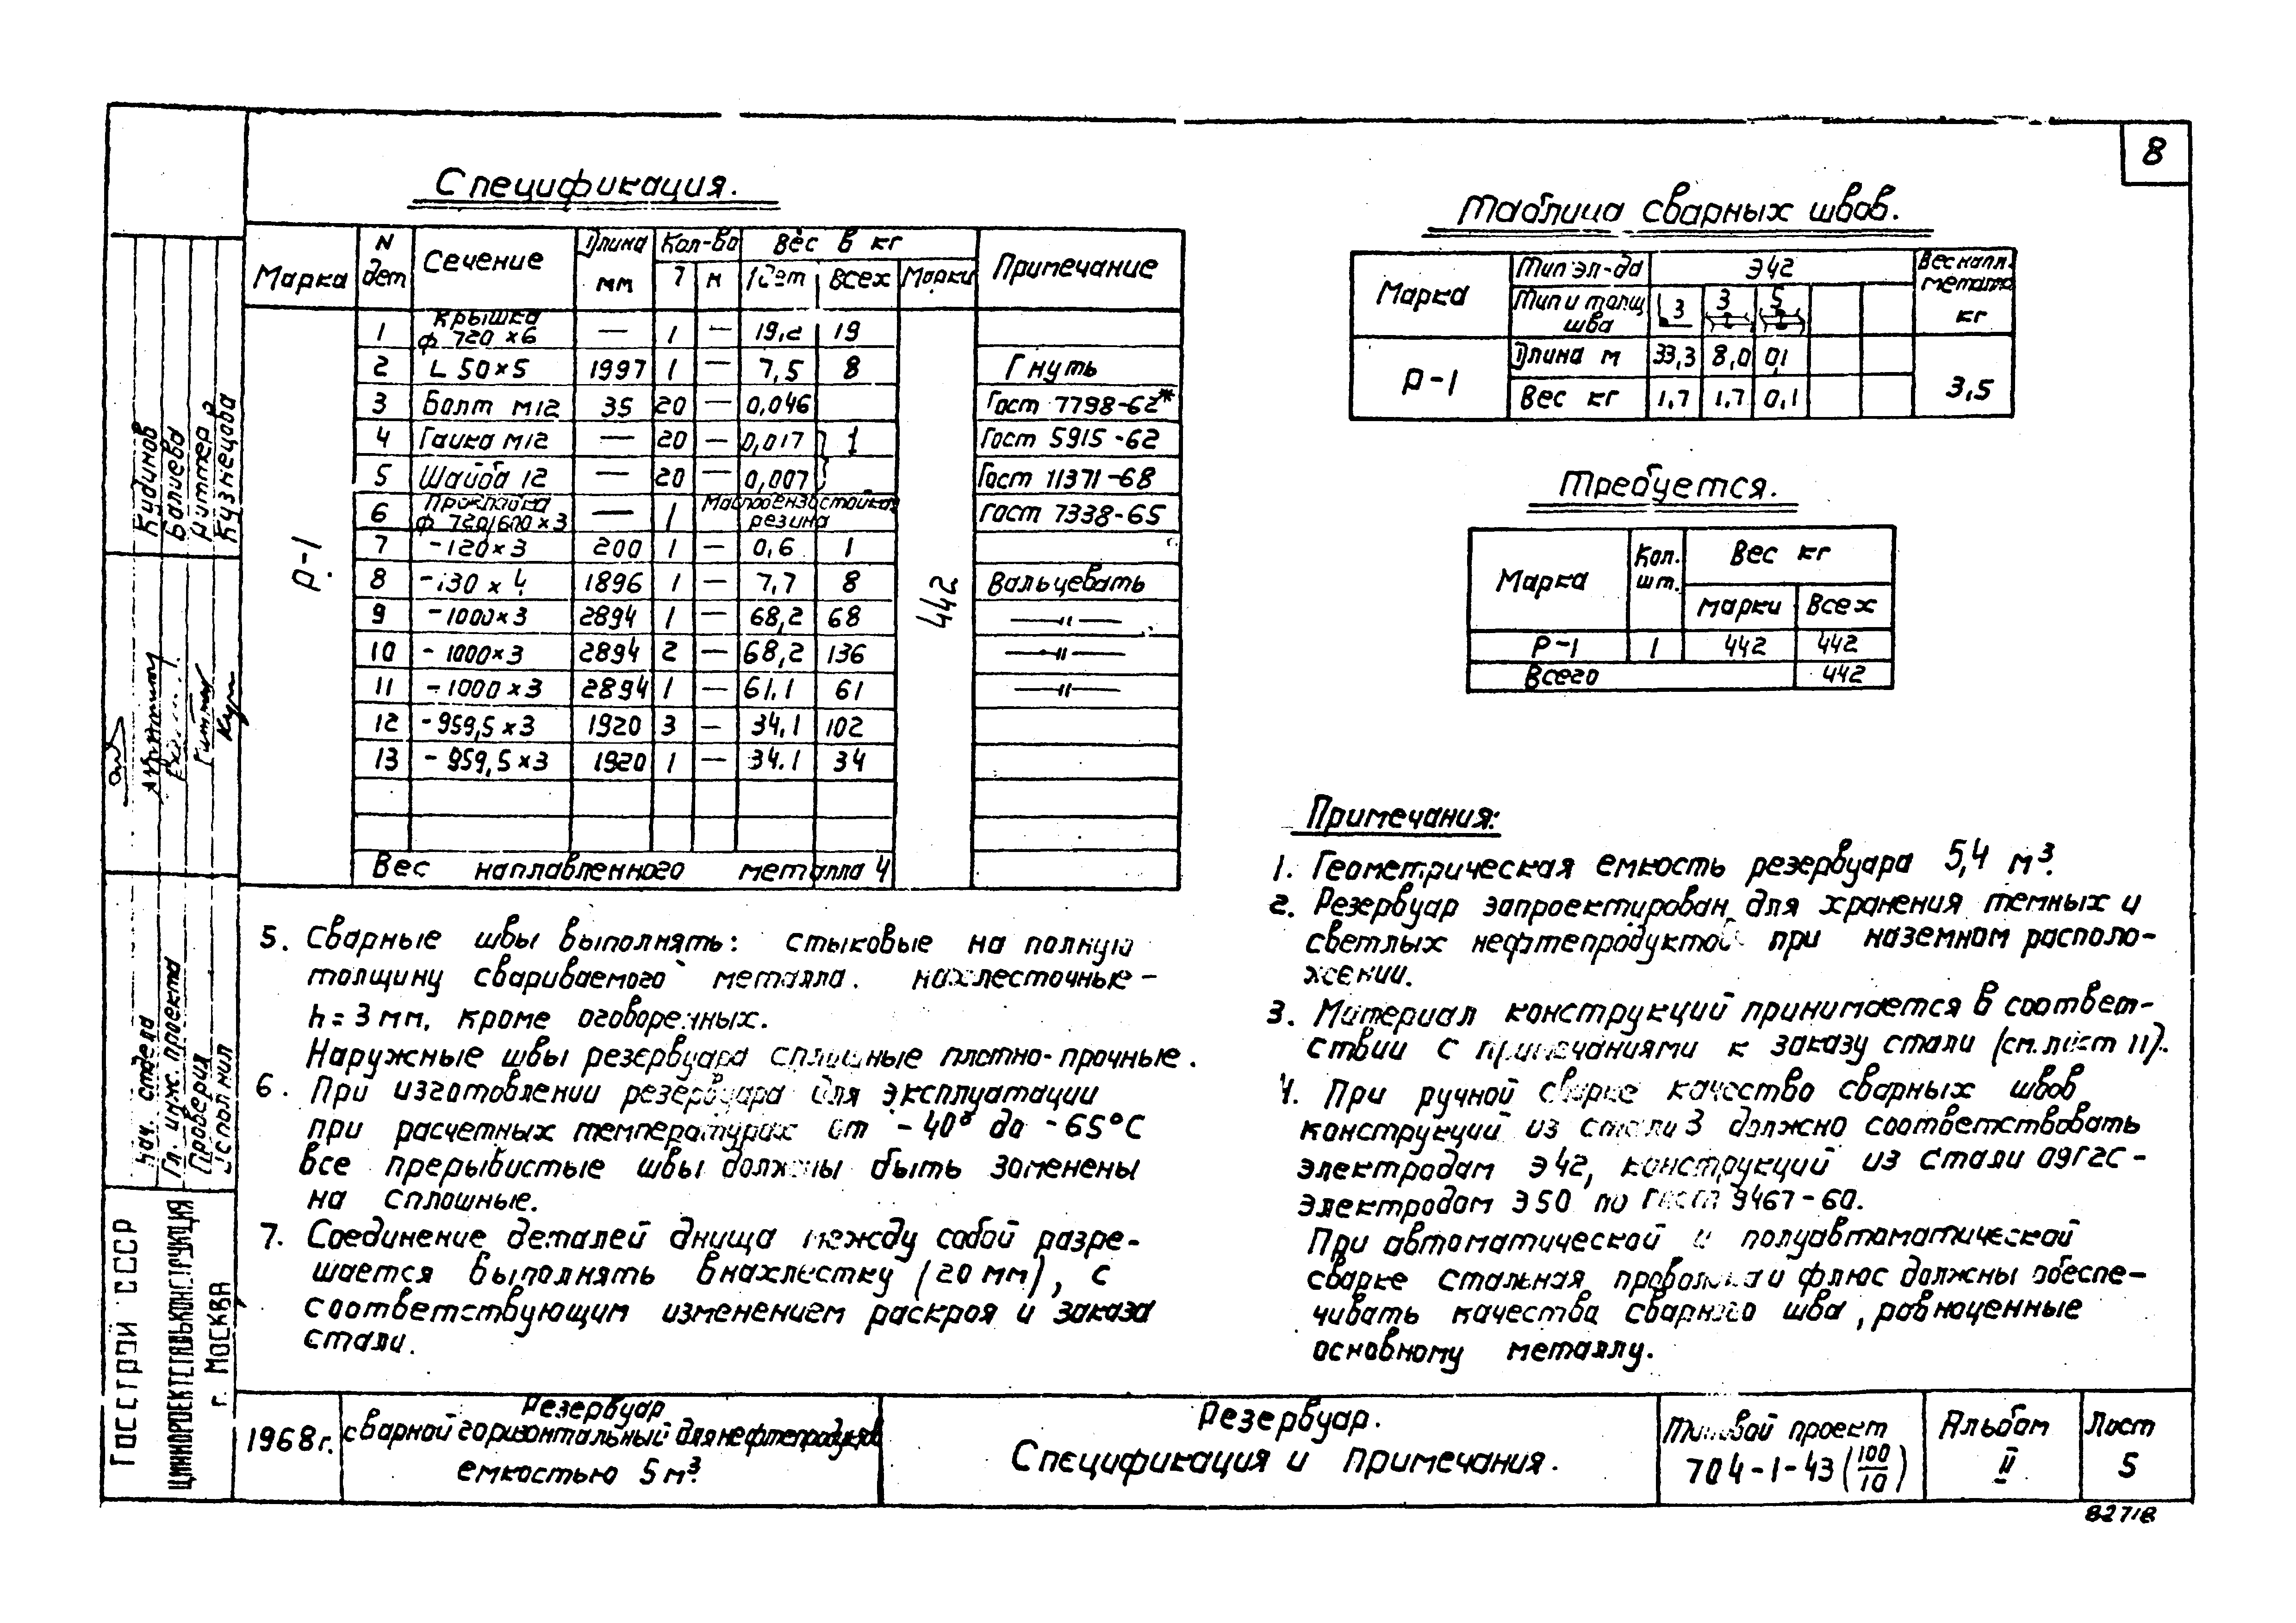 8
Спецификация.
Марка | N дет | Сечение | Длина мм | Кол-во | Вес в кг | Примечание
т | н | 1дет | Всех | Марки
Р-1 | 442
1 | Крышка ф 720 х 6 | — | 1 | — | 19,2 | 19
2 | L 50 х 5 | 1997 | 1 | — | 7,5 | 8 | Гнуть
3 | Болт М12 | 35 | 20 | — | 0,046 | Гост 7798-62*
4 | Гайка М12 | — | 20 | — | 0,017 | 1 | Гост 5915-62
5 | Шайба 12 | — | 20 | — | 0,007 | Гост 11371-68
6 | Прокладка ф 720/600 х 3 | — | 1 | Маслобензостойкая резина | Гост 7338-65
7 | -120 х 3 | 200 | 1 | — | 0,6 | 1
8 | -130 х 4 | 1896 | 1 | — | 7,7 | 8 | Вальцевать
9 | -1000 х 3 | 2894 | 1 | — | 68,2 | 68 | —"—
10 | -1000 х 3 | 2894 | 2 | — | 68,2 | 136 | —"—
11 | -1000 х 3 | 2894 | 1 | — | 61.1 | 61 | —"—
12 | -959,5 х 3 | 1920 | 3 | — | 34,1 | 102
13 | -959,5 х 3 | 1920 | 1 | — | 34.1 | 34
Вес наплавленного металла 4
Таблица сварных швов.
Марка | Тип эл-да | Э42 | Вес напл. металла кг
Тип и толщ шва | 3 | 3 | 5
Р-1 | Длина м | 33,3 | 8,0 | 0,1 | 3,5
Вес кг | 1,7 | 1,7 | 0,1
Требуется.
Марка | Кол. шт. | Вес кг
марки | Всех
Р-1 | 1 | 442 | 442
Всего | 442
Примечания:
1. Геометрическая емкость резервуара 5,4 м³.
2. Резервуар запроектирован для хранения темных и
светлых нефтепродуктов при наземном располо-
жении.
3. Материал конструкций принимается в соответ-
ствии с примечаниями к заказу стали (см. лист 11).
4. При ручной сварке качество сварных швов
конструкций из стали 3 должно соответствовать
электродам Э42, конструкций из стали 09Г2С -
электродам Э50 по Гост 9467-60.
При автоматической и полуавтоматической
сварке стальная проволока и флюс должны обеспе-
чивать качества сварного шва, равноценные
основному металлу.
5. Сварные швы выполнять: стыковые на полную
толщину свариваемого металла. нахлесточные -
h = 3 мм, кроме оговоренных.
Наружные швы резервуара сплошные плотно-прочные.
6. При изготовлении резервуара для эксплуатации
при расчетных температурах от -40° до -65°С
все прерывистые швы должны быть заменены
на сплошные.
7. Соединение деталей днища между собой разре-
шается выполнять внахлестку (20 мм), с
соответствующим изменением раскроя и заказа
стали.
Кудинов
Валиева
Кузнецова
Нач. отдела
Гл. инж. проекта
Проверил
Исполнил
Госстрой СССР
ЦНИИПРОЕКТСТАЛЬКОНСТРУКЦИЯ
г. Москва
1968г.
Резервуар
сварной горизонтальный для нефтепродуктов
емкостью 5м³.
Резервуар.
Спецификация и примечания.
Типовой проект
704-1-43 (100/10)
Альбом
II
Лист
5